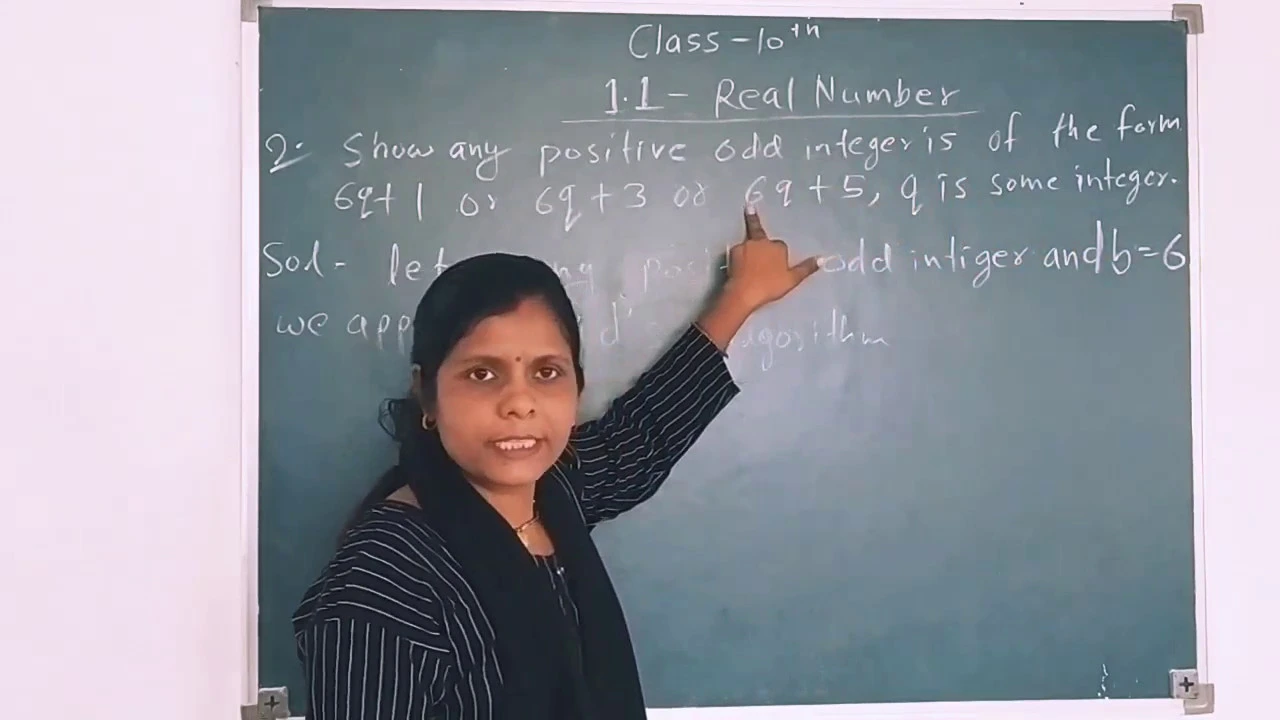 Class - 10th
1.1 - Real Number
2. Show any positive odd integer is of the form
6q+1 or 6q+3 or 6q+5, q is some integer.
Sol- let odd intiger and b=6
we